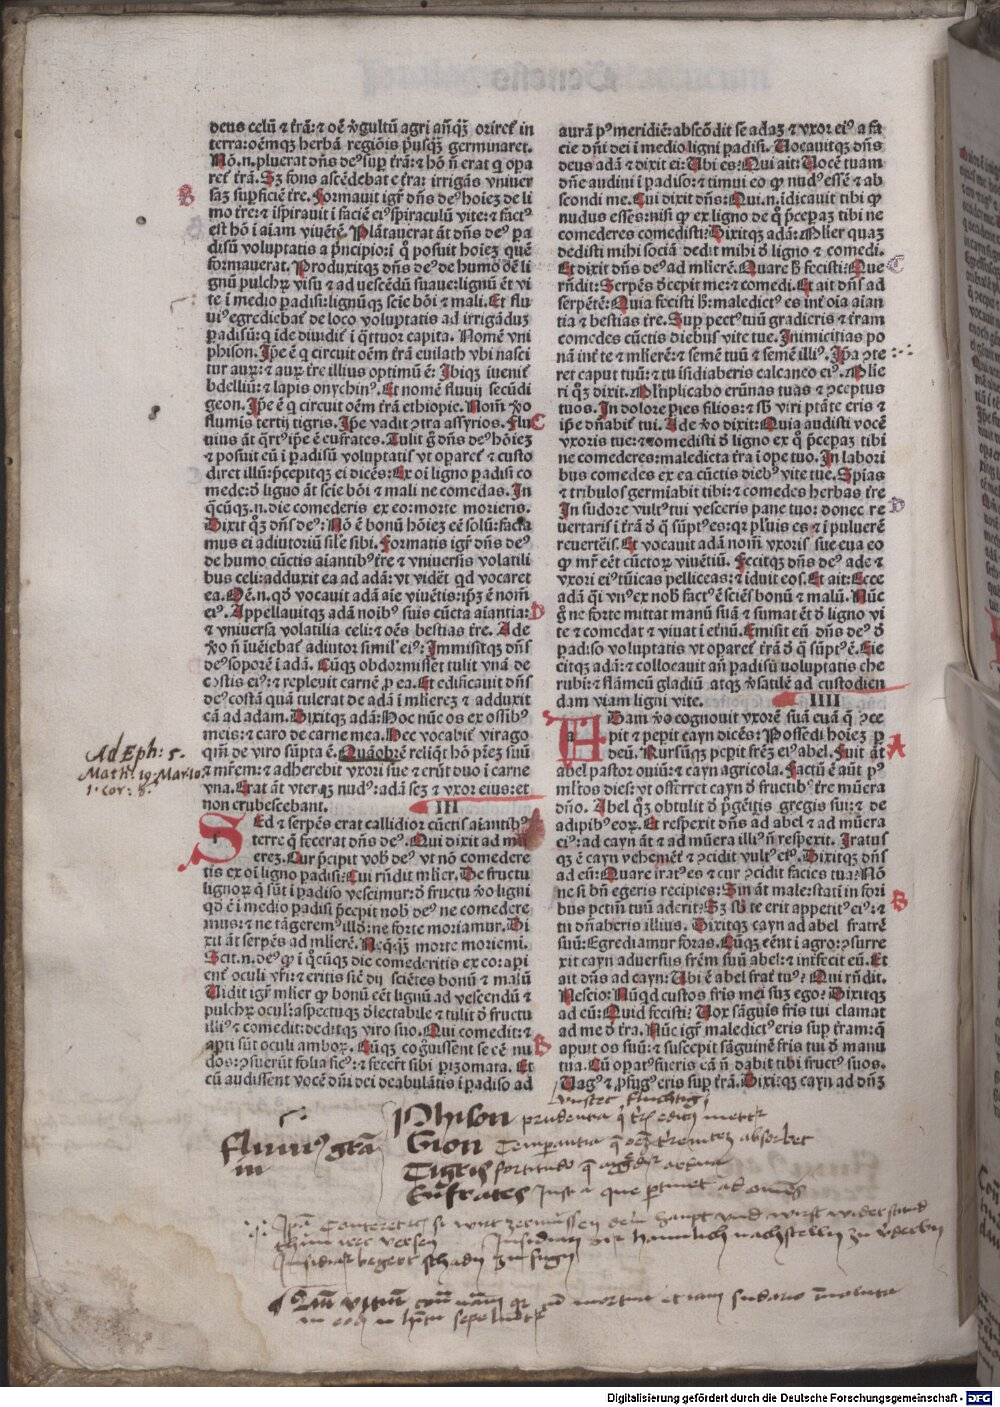 deus celū ⁊ trā: ⁊ oē v̓gultū agri añq̄ꝫ oriret̄ in
terra: oēmqꝫ herbā regiōis p̓usq̄ꝫ germinaret.
Nō.n. pluerat dn̄s deꝰ suꝑ trā: ⁊ hō n̄ erat q opa
ret̄ trā. Sꝫ fons ascēdebat e tra: irrigās vniuer
saꝫ suꝑficiē tre. Formauit igr̄ dn̄s deꝰ hoieꝫ de li
mo tre: ⁊ īspirauit ī faciē eiꝰ spiraculū vite: ⁊ factꝰ
est hō ī aīam viuētē. Plātauerat āt dn̄s deꝰ pa
disū voluptatis a p̓ncipio: ī q̊ posuit hoieꝫ quē
formauerat. Produxitqꝫ dn̄s deꝰ de humo oē li
gnū pulchꝝ visu ⁊ ad vescēdū suaue: lignū ēt vi
te ī medio padisi: lignūqꝫ scīe bōi ⁊ mali. Et flu
uiꝰ egrediebat̄ de loco voluptatis ad irrigāduꝫ
padisū: q ide diuidit̄ ī q̄ttuor capita. Nomē vni
phison. Ip̄e ē q circuit oēm trā euilath vbi nasci
tur auꝝ: ⁊ auꝝ tre illius optimū ē: Ibiqꝫ iuenit̄
bdelliū: ⁊ lapis onychinꝰ. Et nomē fluuij secūdi
geon. Ip̄e ē q circuit oēm trā ethiopie. Nom̄ v̓o
flumis tertij tigris. Ip̄e vadit ꝯtra assyrios. Flu
uius āt q̄rtꝰ ip̄e ē eufrates. Tulit g̊ dn̄s deꝰ hōieꝫ
⁊ posuit eū ī padisū voluptatis vt oparet̄ ⁊ custo
diret illū: p̄cepitqꝫ ei dicēs: Ex oī ligno padisi co
mede: d̓ ligno āt scīe bōi ⁊ mali ne comedas. In
q̄cūqꝫ.n. die comederis ex eo: morte morieris.
Dixit q̄ꝫ dn̄s deꝰ: Nō ē bonū hōieꝫ eē solū: facia
mus ei adiutoriū sile sibi. Formatis igr̄ dn̄s deꝰ
de humo cūctis aīantibꝰ tre ⁊ vniuersis volatili
bus celi: adduxit ea ad adā: vt videt̄ qd vocaret
ea. Oē.n. qd̓ vocauit adā aīe viuētis: ip̄ꝫ ē nom̄
eiꝰ. Appellauitqꝫ adā noībꝰ suis cūcta aīantia:
⁊ vniuersa volatilia celi: ⁊ oēs bestias tre. Ade
v̓o n̄ īueiebat̄ adiutor similꝰ eiꝰ: Immisitqꝫ dn̄s
deꝰ soporē ī adā. Cūqꝫ obdormisset tulit vnā de
costis eiꝰ: ⁊ repleuit carnē ꝓ ea. Et edificauit dn̄s
deꝰ costā quā tulerat de adā ī mlierez ⁊ adduxit
eā ad adam. Dixitqꝫ adā: Hoc nūc os ex ossibꝰ
meis: ⁊ caro de carne mea. Hec vocabit̄ virago
qm̄ de viro sūpta ē. Quāobrē reliq̄t hō prēꝫ suū
⁊ mr̄em: ⁊ adherebit vxori sue ⁊ erūt duo ī carne
vna. Erat āt vterqꝫ nudꝰ: adā scꝫ ⁊ vxor eius: et
non erubescebant. III
SEd ⁊ serpēs erat callidior cūctis aīantibꝰ
terre q̄ fecerat dn̄s deꝰ. Qui dixit ad m̄li
erez. Cur p̄cipit vob̄ deꝰ vt nō comedere
tis ex oī ligno padisi: Cui rn̄dit mlier. De fructu
lignoꝝ q̄ sūt ī padiso vescimur: d̓ fructu v̓o ligni
qd̓ ē ī medio padisi p̄cepit nob̄ deꝰ ne comedere
mus: ⁊ ne tāgeremꝰ illd̓: ne forte moriamur. Di
xit āt serpēs ad mlierē. Neq̄qꝫ morte moriemī.
Scit.n. deꝰ ꝙ ī q̊cūqꝫ die comederitis ex eo: apī
ent̄ oculi vr̄i: ⁊ eritis sic̄ dij sciētes bonū ⁊ malū
Uidit igr̄ mlier ꝙ bonū eēt lignū ad vescendū ⁊
pulchꝝ ocul̄: aspectuqꝫ d̓lectabile ⁊ tulit d̓ fructu
illiꝰ ⁊ comedit: deditqꝫ viro suo. Qui comedit: ⁊
apti sūt oculi amboꝝ. Cūqꝫ cog̊uissent se eē nu
dos: ꝯsuerūt folia ficꝰ: ⁊ fecert̄ sibi pizomata. Et
cū audissent vocē dn̄i dei deabulātis ī padiso ad
aurā pꝰ meridiē: abscōdit se adaꝫ ⁊ vxor eiꝰ a fa
cie dn̄i dei ī medio ligni padisi. Uocauitqꝫ dn̄s
deus adā ⁊ dixit ei: Ubi es: Qui ait: Uocē tuam
dn̄e audini ī padiso: ⁊ timui eo ꝙ nudꝰ essē ⁊ ab
scondi me. Cui dixit dn̄s: Qui.n. īdicauit tibi ꝙ
nudus esses: nisi ꝙ ex ligno de q̊ p̄cepaꝫ tibi ne
comederes comedisti: Dixitqꝫ adā: Mlier quaꝫ
dedisti mihi sociā dedit mihi d̓ ligno ⁊ comedi.
Et dixit dn̄s deꝰ ad mlierē. Quare h̄ fecisti: Que
rn̄dit: Serpēs d̓cepit me: ⁊ comedi. Et ait dn̄s ad
serpētē: Quia fecisti h̄: maledictꝰ es int̄ oīa aīan
tia ⁊ bestias tre. Suꝑ pectꝰ tuū gradieris ⁊ tram
comedes cūctis diebus vite tue. Inimicitias po
nā int̄ te ⁊ mlierē: ⁊ semē tuū ⁊ semē illiꝰ. Ip̄a ꝯte
ret caput tuū: ⁊ tu īsidiaberis calcaneo eiꝰ. Mlie
ri q̄ꝫ dixit. Mltiplicabo erūnas tuas ⁊ ꝯceptus
tuos. In dolore paries filios: ⁊ sb̄ viri ptāte eris ⁊
ip̄e dn̄abit̄ tui. Ade v̓o dixit: Quia audisti vocē
vxoris tue: ⁊ comedisti d̓ ligno ex q̊ p̄cepaꝫ tibi
ne comederes: maledicta tra ī ope tuo. In labori
bus comedes ex ea cūctis diebꝰ vite tue. Spīas
⁊ tribulos germīabit tibi: ⁊ comedes herbas tre
In sudore vultꝰ tui vesceris pane tuo: donec re
uertaris ī trā d̓ q̄ sūptꝰ es: qr puluis es ⁊ ī puluerē
reuertēis. Et vocauit adā nom̄ vxoris sue eua eo
ꝙ mr̄ eēt cūctoꝝ viuētiū. Fecitqꝫ dn̄s deꝰ ade ⁊
vxori eiꝰ tūicas pelliceas: ⁊ īduit eos. Et ait: Ecce
adā q̄i vnꝰ ex nob̄ factꝰ ē sciēs bonū ⁊ malū. Nūc
g̊ ne forte mittat manū suā ⁊ sumat ēt d̓ ligno vi
te ⁊ comedat ⁊ viuat ī etnū. Emisit eū dn̄s deꝰ d̓
padiso voluptatis vt oparet̄ trā d̓ q̄ sūptꝰ ē. Eie
citqꝫ adā: ⁊ collocauit añ padisū uoluptatis che
rubī: ⁊ flāmeū gladiū atqꝫ v̓satilē ad custodien
dam viam ligni vite. IIII
ADam v̓o cognouit vxorē suā euā q̄ ꝯce
pit ⁊ pepit cayn dicēs: Possedi hoieꝫ p
deū. Rursūqꝫ pepit frēꝫ eiꝰ abel. Fuit āt
abel pastor ouiū: ⁊ cayn agricola. Factū ē aūt pꝰ
ml̄tos dies: vt offerret cayn d̓ fructibꝰ tre mūera
dn̄o. Abel q̄ꝫ obtulit d̓ p̓gēitis gregis sui: ⁊ de
adipibꝰ eoꝝ. Et respexit dn̄s ad abel ⁊ ad mūera
eiꝰ: ad cayn āt ⁊ ad mūera illiꝰ n̄ respexit. Iratus
qꝫ ē cayn vehemēt̄ ⁊ ꝯcidit vultꝰ eiꝰ. Dixitqꝫ dn̄s
ad eū: Quare iratꝰ es ⁊ cur ꝯcidit facies tua? Nō
ne si bn̄ egeris recipies: Sin āt male: stati in fori
bus pctm̄ tuū aderit: Sꝫ sb̄ te erit appetitꝰ eiꝰ: ⁊
tu dn̄aberis illius. Dixitqꝫ cayn ad abel fratrē
suū: Egrediamur foras. Cūqꝫ eēnt ī agro: ꝯsurre
xit cayn aduersus frēm suū abel: ⁊ int̄fecit eū. Et
ait dn̄s ad cayn: Ubi ē abel frat̄ tuꝰ? Qui rn̄dit.
Nescio: Nūqd custos fris mei suꝫ ego? Dixitqꝫ
ad eū: Quid fecisti? Uox sāguīs fris tui clamat
ad me d̓ tra. Nūc igr̄ maledictꝰ eris suꝑ tram: q̄
apuit os suū: ⁊ suscepit sāguinē fris tui d̓ manu
tua. Cū opatꝰ fueris eā n̄ dabit tibi fructꝰ suos.
Uagꝰ ⁊ ꝓfugꝰ eris suꝑ trā. Dixitqꝫ cayn ad dn̄ꝫ
B
C
D
B
C
D
A
B
Ad Eph: 5.
Math: 19. Mar: 10.
1. Cor:
fluchtig
Phison prudentia
Gion Temperantia absorbet
Tigris fortitudo
Eufrates ad omnes
haupt vnd wirst widerstand
haimlich nachstellen zu
begert schaden zufugen
mortua et iam sudario
Digitalisierung gefördert durch die Deutsche Forschungsgemeinschaft - DFG